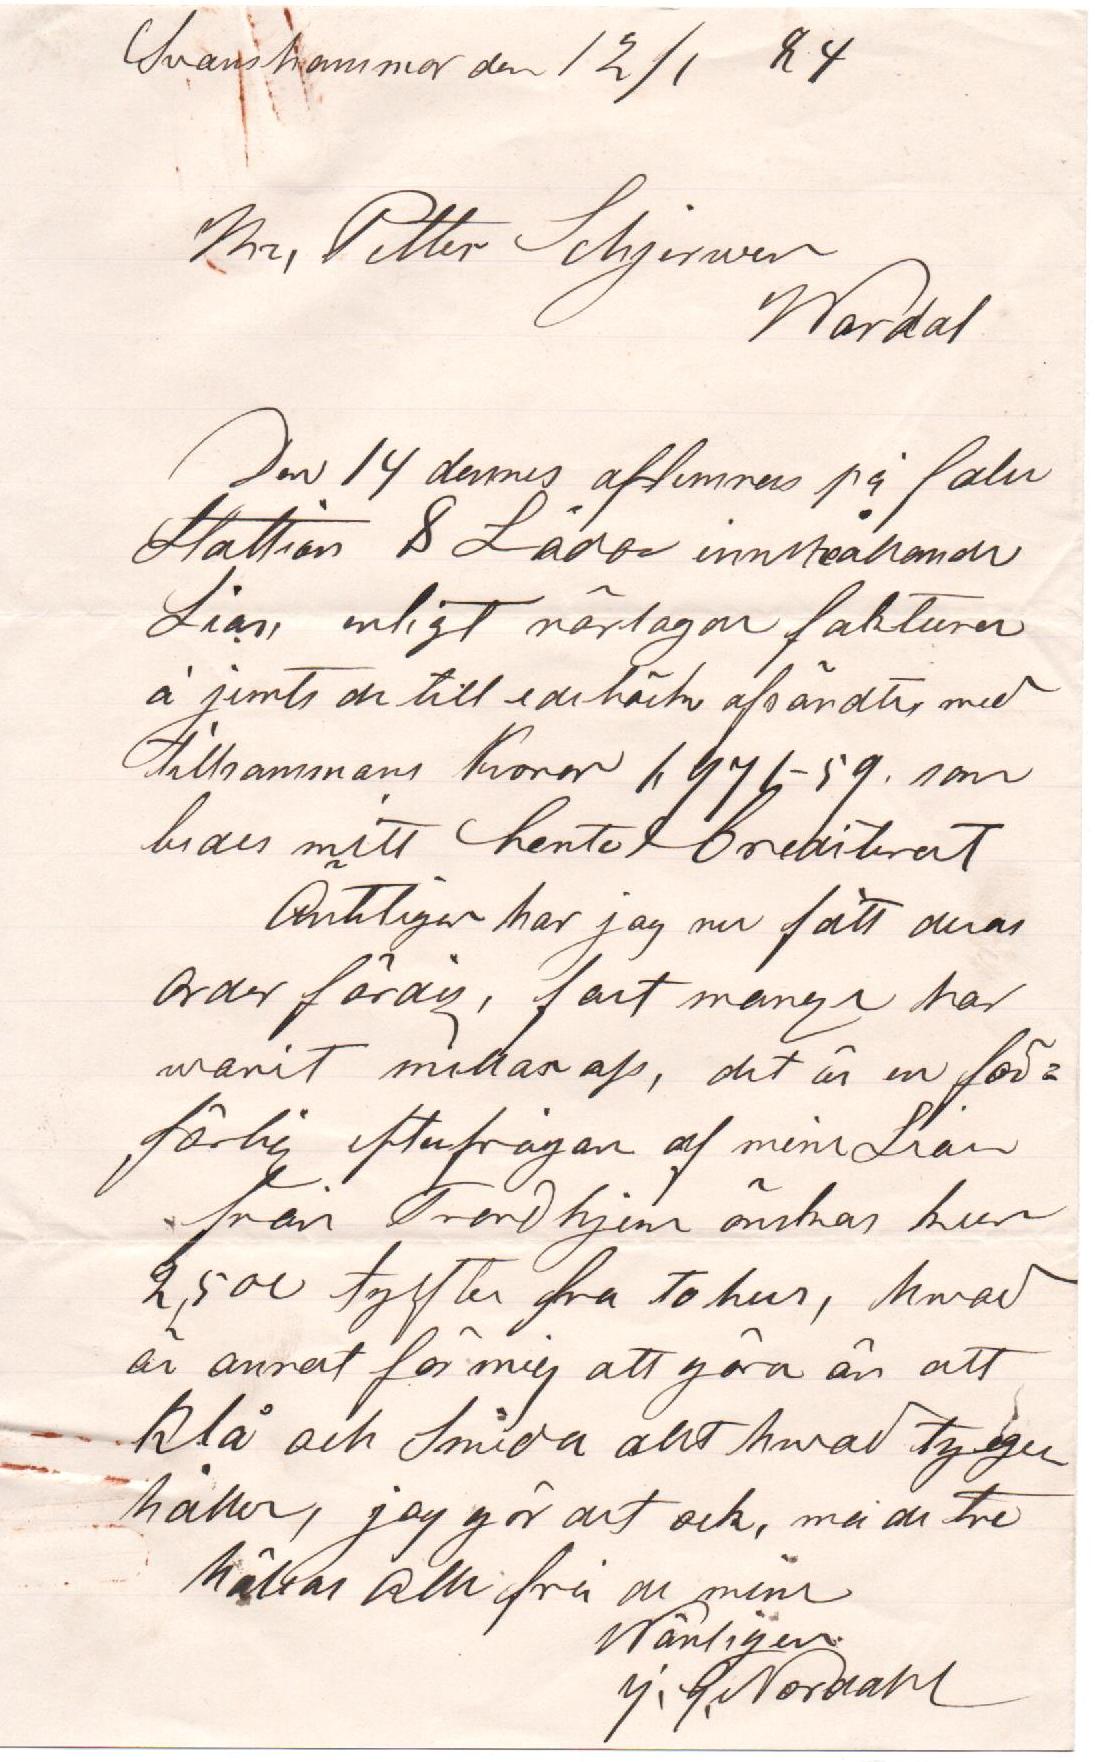 Svanshammar den 12/1 84
Mr, Petter Schjerwen
Wardal
Den 14 dennes aflemnas på falu
Stattion 8 Lådor innehållande
Liar, enligt närlagda fakturer
å jemte de till afsändte, med
tillsammans Kronor 1,971-59. som
bedes mitt Conto Crediterat
Äntligen har jag nu fått deras
order färdig, fast mange har
warit mellan afs, det är en för=
färlig efterfrågan af mine Liar
från Trondhjem önskas kun
2,500 tylfter fra to hus, hwad
är annat för mig att göra än att
Klå och Smida alt hwad tygen
håller, jag gör det ock, må de tre
hälsas Alle frå de mine
Wänligen
J. G. Nordahl